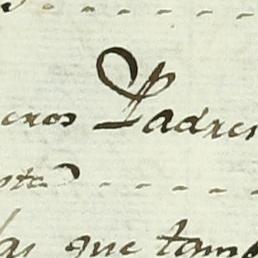 eros Padres
sta
las que tam